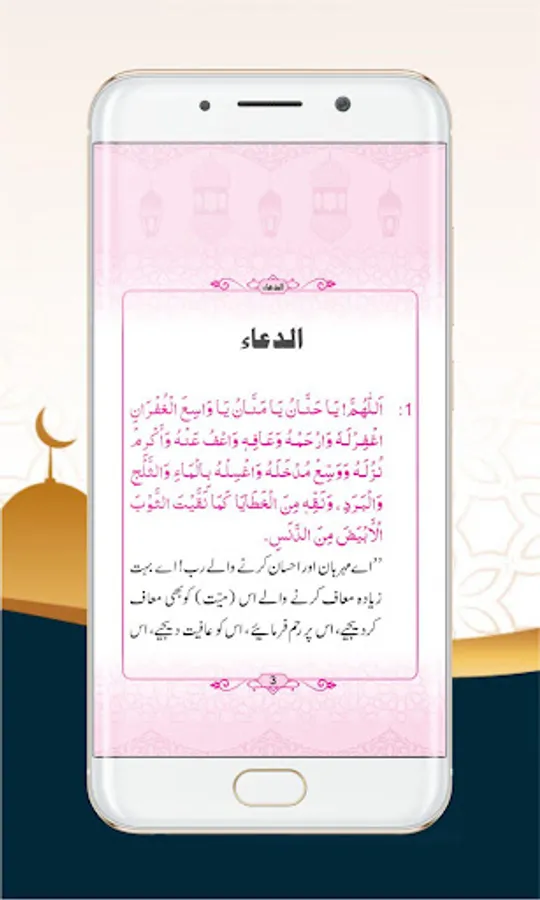 الدعاء
الدعاء
1: اَللّٰهُمَّ! يَا حَنَّانُ يَا مَنَّانُ يَا وَاسِعَ الْغُفْرَانِ
اغْفِرْلَهُ وَارْحَمْهُ وَعَافِهٖ وَاعْفُ عَنْهُ وَأَكْرِمْ
نُزُلَهُ وَوَسِّعْ مُدْخَلَهُ وَاغْسِلْهُ بِالْمَاءِ وَالثَّلْجِ
وَالْبَرَدِ، وَنَقِّهٖ مِنَ الْخَطَايَا كَمَا نَقَّيْتَ الثَّوْبَ
الْأَبْيَضَ مِنَ الدَّنَسِ.
”اے مہربان اور احسان کرنے والے رب! اے بہت
زیادہ معاف کرنے والے اس (میّت) کو بھی معاف
کر دیجیے، اس پر رحم فرمائیے، اس کو عافیت دیجیے، اس
3